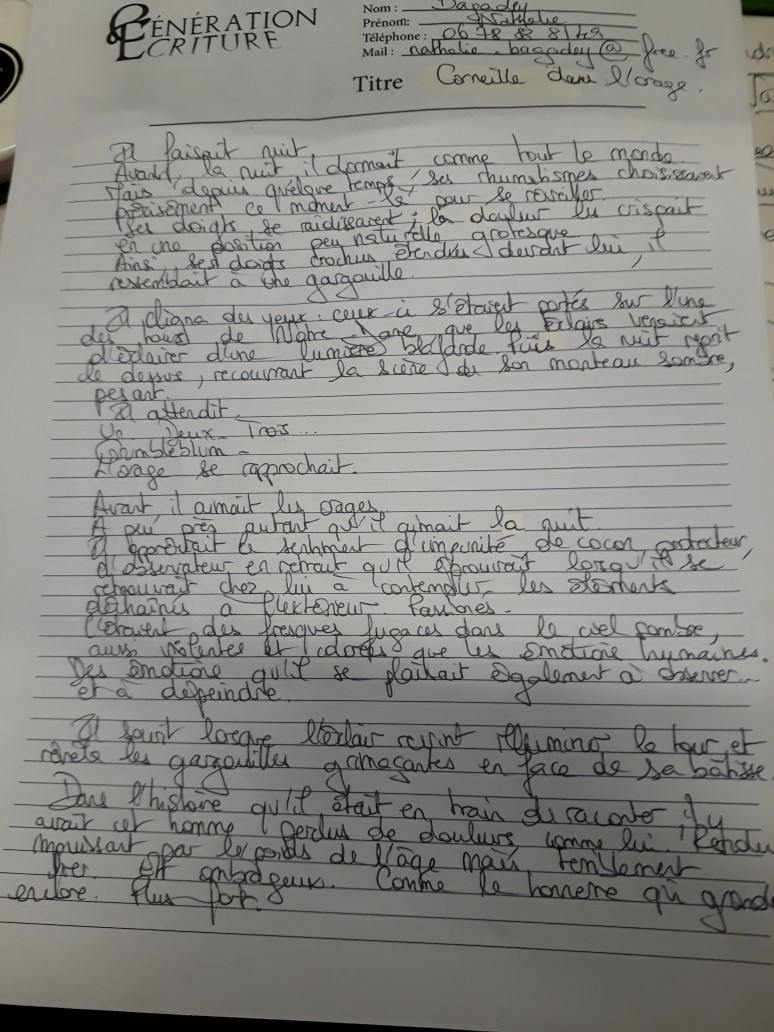 GÉNÉRATION
ÉCRITURE
Nom : Bagadey
Prénom: Nathalie
Téléphone : 06 78 82 81 49
Mail : nathalie.bagadey@free.fr
Titre Corneille dans l'orage.
Il faisait nuit.
Avant, la nuit il dormait comme tout le monde.
Mais depuis quelque temps, ses rhumatismes choisissaient
précisément ce moment-là pour se réveiller.
Ses doigts se raidissaient ; la douleur les crispait
en une position peu naturelle, grotesque.
Ainsi, ses doigts crochus étendus devant lui, il
ressemblait à une gargouille.
Il cligna des yeux : ceux-ci s'étaient portés sur l'une
des tours de Notre Dame que les éclairs venaient
d'éclairer d'une lumière blafarde puis la nuit reprit
le dessus, recouvrant la scène de son manteau sombre,
pesant.
Il attendit.
Un. Deux. Trois...
L'orage se rapprochait.
Avant, il aimait les orages.
A peu près autant qu'il aimait la nuit.
Il appréciait le sentiment d'impunité, de cocon protecteur,
d'observateur en retrait qu'il éprouvait lorsqu'il se
retrouvait chez lui à contempler les éléments
déchaînés à l'extérieur.
C'étaient des fresques fugaces dans le ciel sombre,
aussi violentes et colorées que les émotions humaines.
Des émotions qu'il se plaisait également à observer
et à dépeindre.
Il sourit lorsque l'éclair revint illuminer la tour et
révéla les gargouilles grimaçantes en face de sa bâtisse.
Dans l'histoire qu'il était en train de raconter il y
avait cet homme, perclus de douleurs, comme lui. Rendu
impuissant par le poids de l'âge mais, terriblement
fier. Et ombrageux. Comme le tonnerre qui gronde
encore. Plus fort.